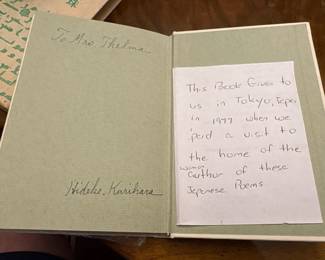 To Mrs. Thelma
Hideko. Kurihara
This Book Given to
us in Tokyo, Japan
in 1977 when we
paid a visit to
the home of the
woman
author of these
Japanese Poems